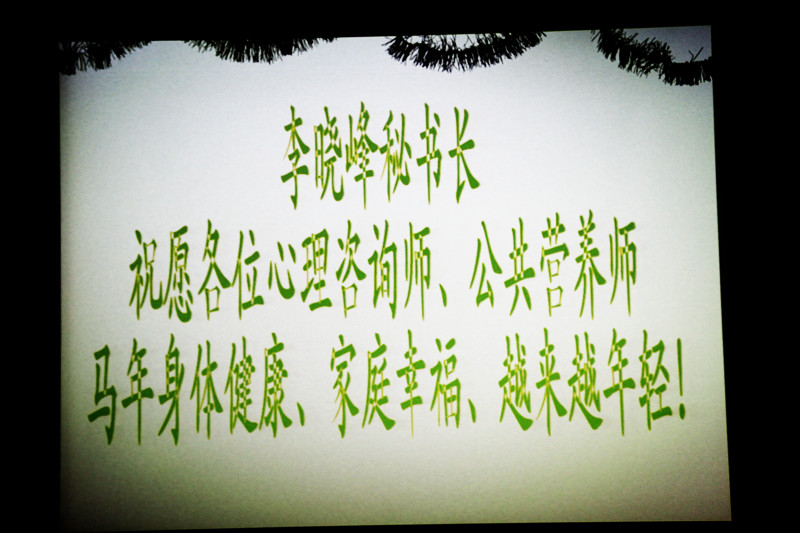 李晓峰秘书长
祝愿各位心理咨询师、公共营养师
马年身体健康、家庭幸福、越来越年轻!